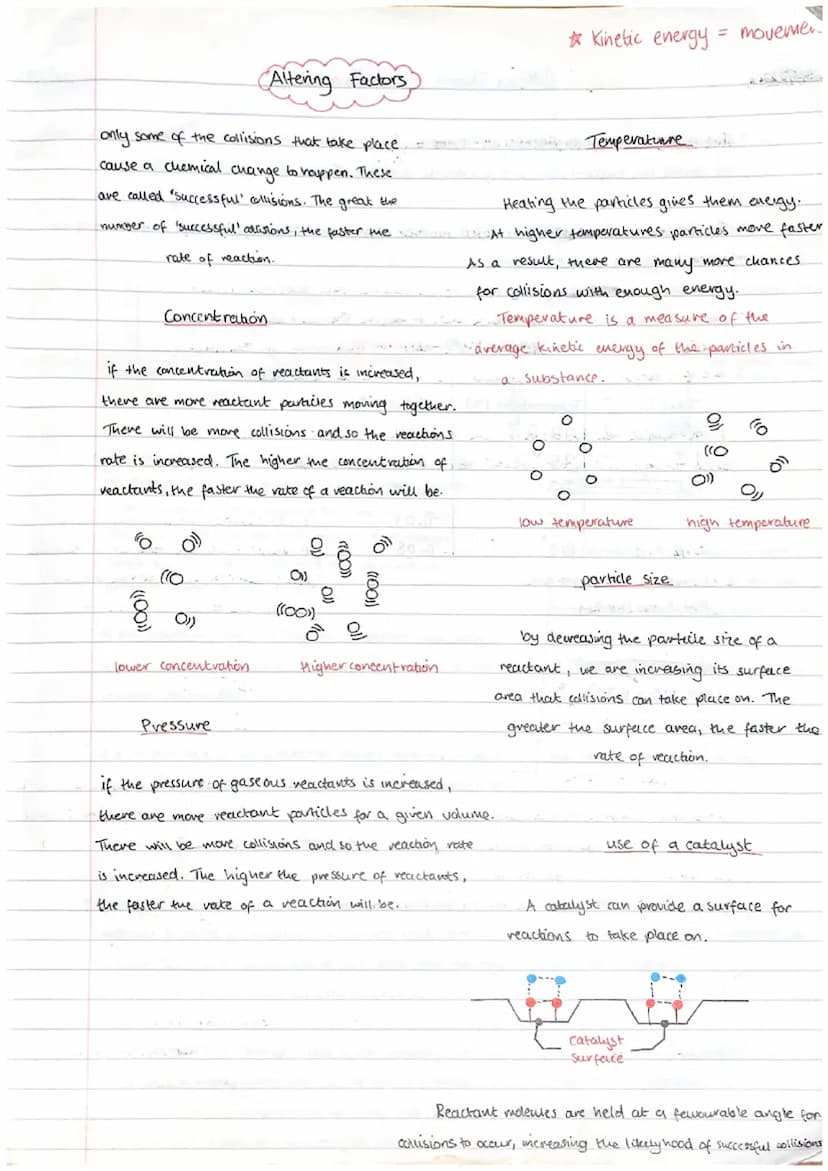 ☆ Kinetic energy = movemen
Altering Factors
only some of the collisions that take place
cause a chemical change to happen. These
are called 'successful' collisions. The great the
number of 'successful' collisions, the faster the
rate of reaction.
Concentration
if the concentration of reactants is increased,
there are more reactant particles moving together.
There will be more collisions and so the reactions
rate is increased. The higher the concentration of
reactants, the faster the rate of a reaction will be.
lower concentration
Higher concentration
Pressure
if the pressure of gaseous reactants is increased,
there are more reactant particles for a given volume.
There will be more collisions and so the reaction rate
is increased. The higher the pressure of reactants,
the faster the rate of a reaction will be.
Temperature
Heating the particles gives them energy.
At higher temperatures particles move faster
As a result, there are many more chances
for collisions with enough energy.
Temperature is a measure of the
average kinetic energy of the particles in
a substance.
low temperature
high temperature
particle size
by decreasing the particle size of a
reactant, we are increasing its surface
area that collisions can take place on. The
greater the surface area, the faster the
rate of reaction.
use of a catalyst
A catalyst can provide a surface for
reactions to take place on.
Catalyst
Surface
Reactant molecules are held at a favourable angle for
collisions to occur, increasing the likelyhood of successful collisions